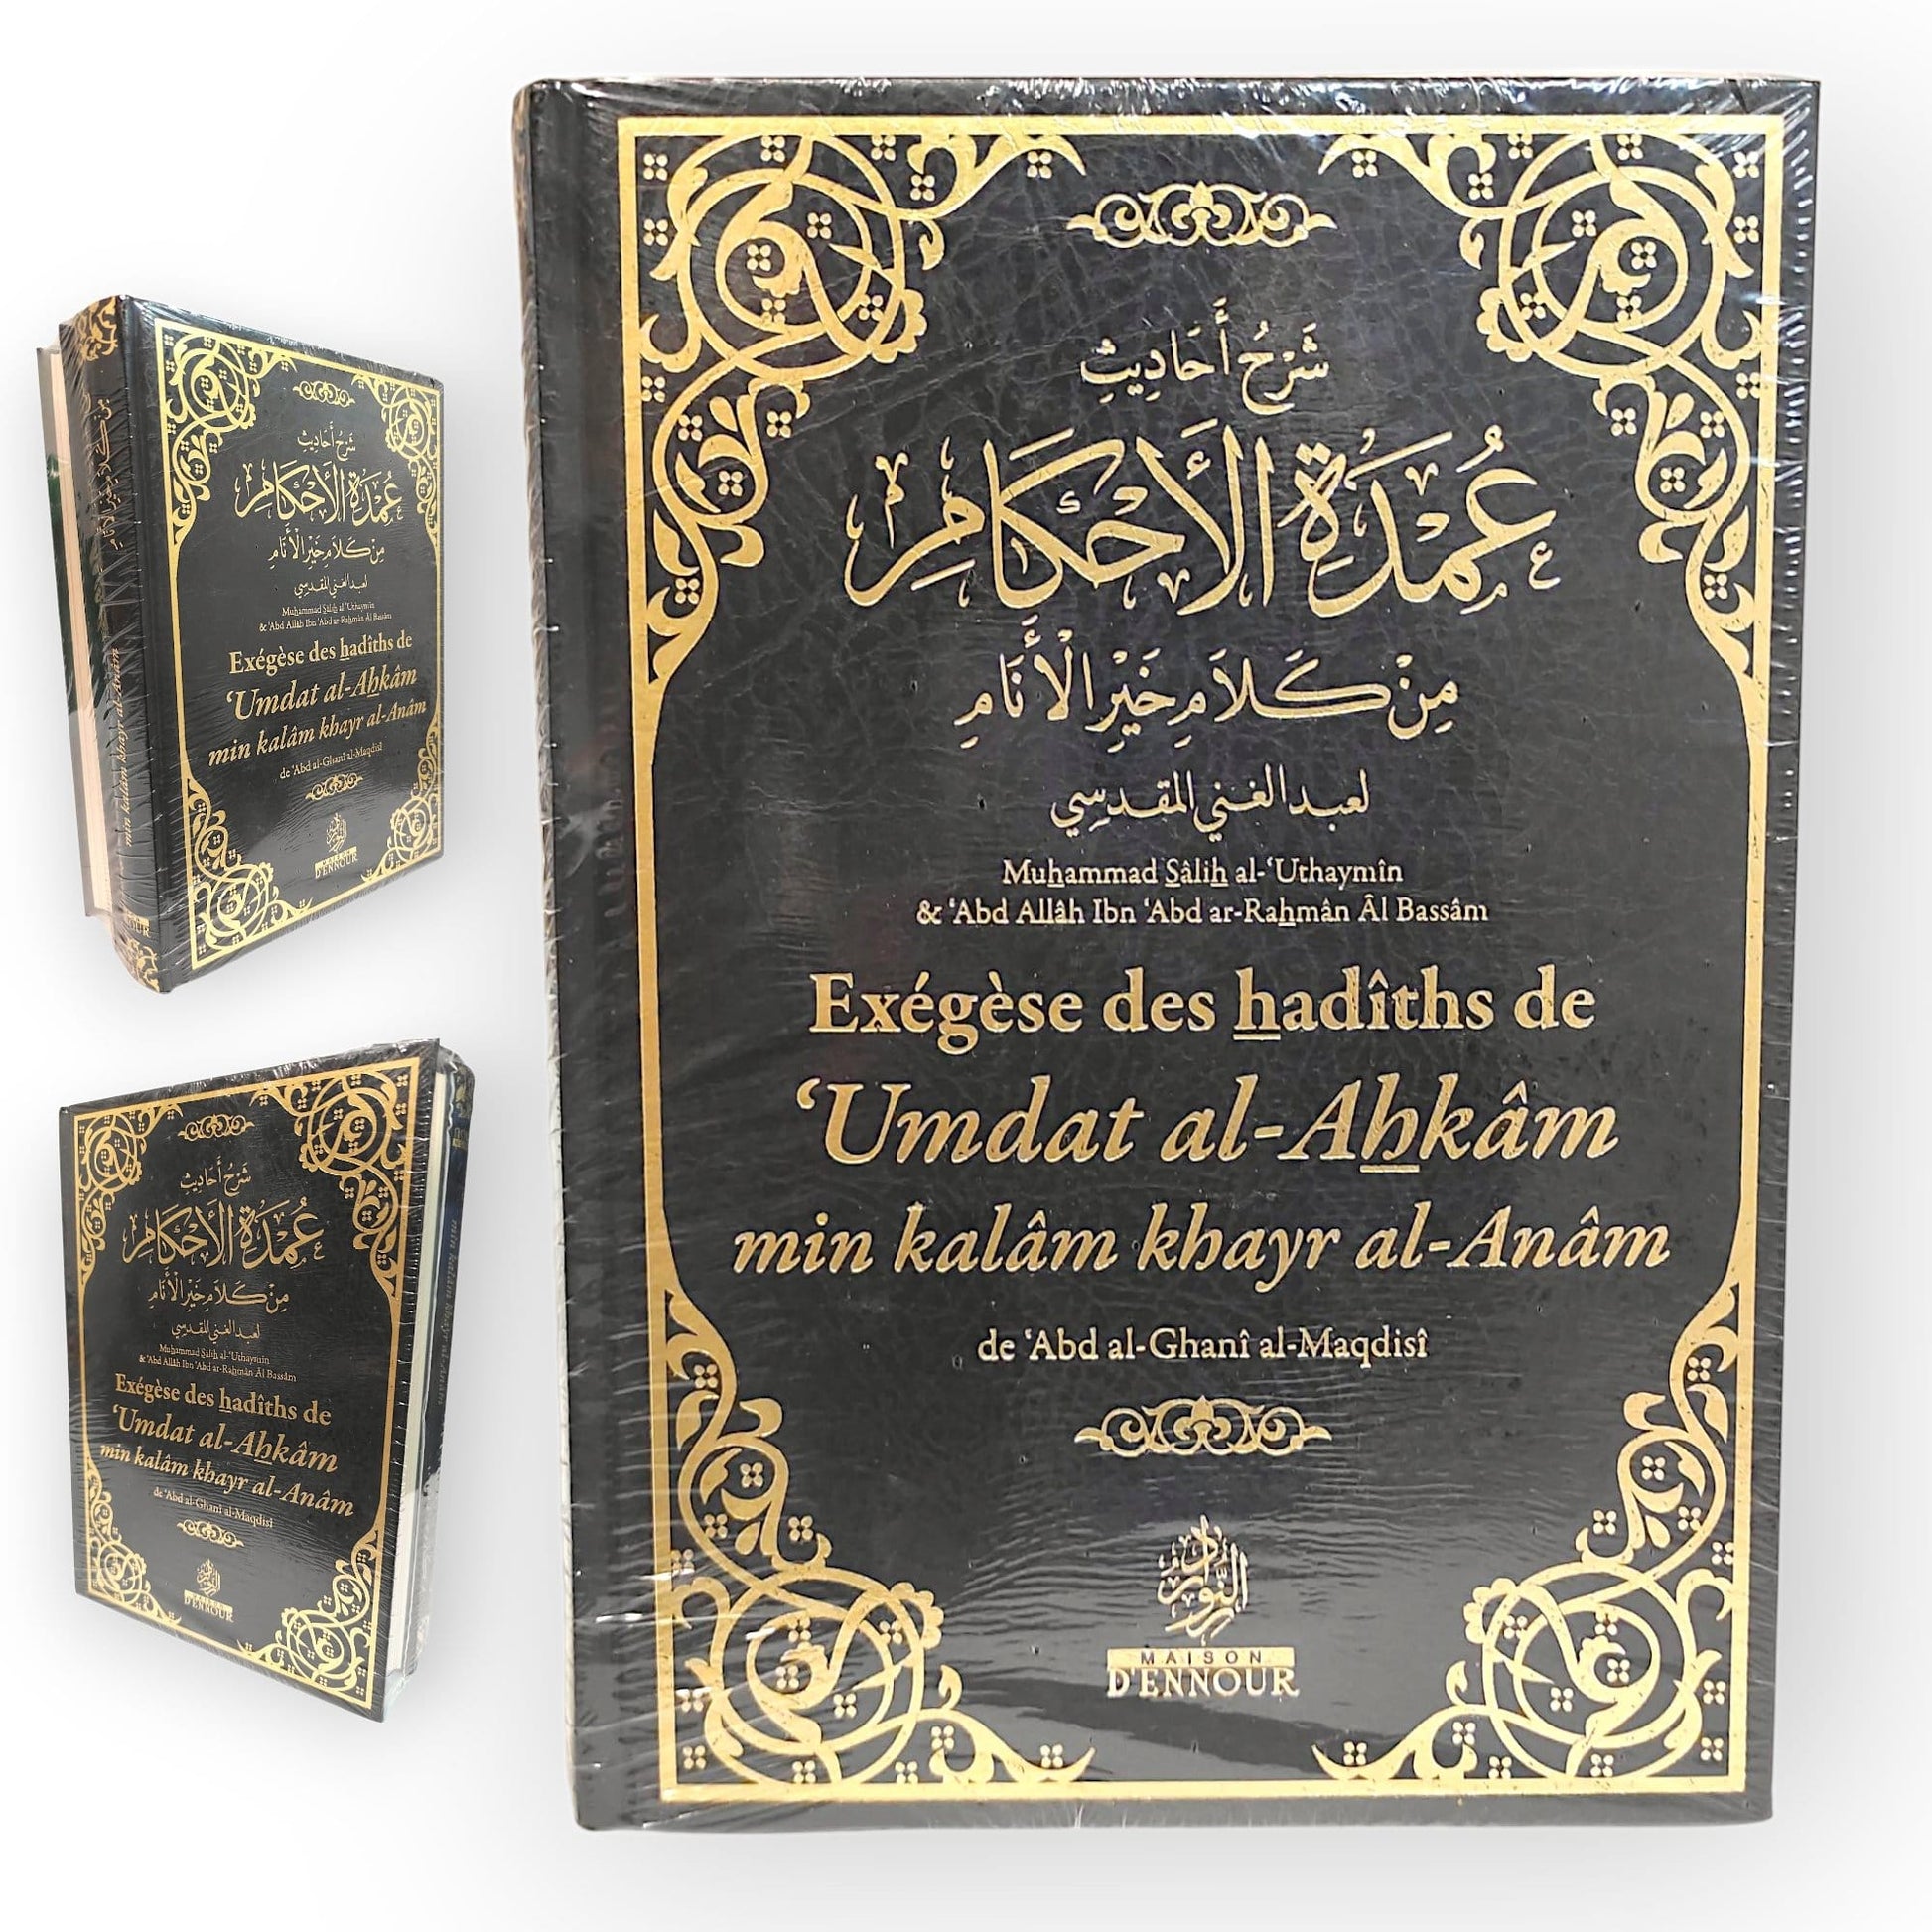 شَرْحُ أَحَادِيثِ
عُمْدَةُ الأَحْكَامِ
مِنْ كَلَامِ خَيْرِ الْأَنَامِ
لعبد الغني المقدسي
Muhammad Sâlih al-‘Uthaymîn
& ‘Abd Allâh Ibn ‘Abd ar-Rahmân Âl Bassâm
Exégèse des hadîths de
‘Umdat al-Ahkâm
min kalâm khayr al-Anâm
de ‘Abd al-Ghanî al-Maqdisî
MAISON
D'ENNOUR
شَرْحُ أَحَادِيثِ
عُمْدَةُ الأَحْكَامِ
مِنْ كَلَامِ خَيْرِ الْأَنَامِ
لعبد الغني المقدسي
Muhammad Sâlih al-‘Uthaymîn
& ‘Abd Allâh Ibn ‘Abd ar-Rahmân Âl Bassâm
Exégèse des hadîths de
‘Umdat al-Ahkâm
min kalâm khayr al-Anâm
de ‘Abd al-Ghanî al-Maqdisî
MAISON
D'ENNOUR
min kalâm khayr al-Anâm
شَرْحُ أَحَادِيثِ
عُمْدَةُ الأَحْكَامِ
مِنْ كَلَامِ خَيْرِ الْأَنَامِ
لعبد الغني المقدسي
Muhammad Sâlih al-‘Uthaymîn
& ‘Abd Allâh Ibn ‘Abd ar-Rahmân Âl Bassâm
Exégèse des hadîths de
‘Umdat al-Ahkâm
min kalâm khayr al-Anâm
de ‘Abd al-Ghanî al-Maqdisî
D'ENNOUR